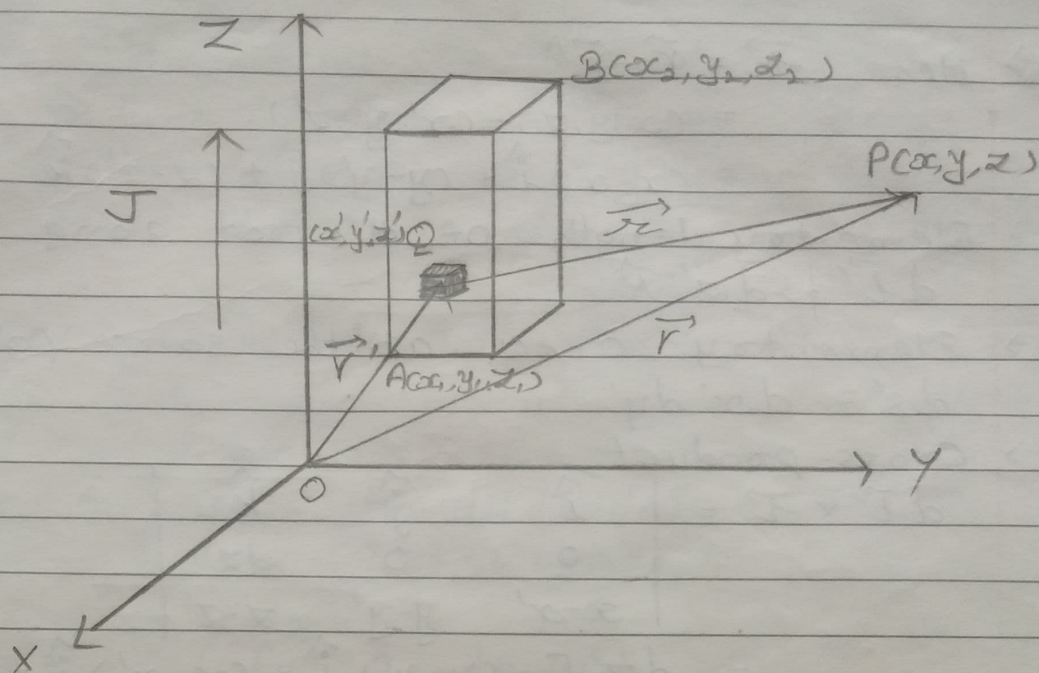 Z
B(x₂, y₂, z₂)
P(x, y, z)
J
r⃗
(x', y', z') Q
r⃗
r⃗'
A(x₁, y₁, z₁)
Y
O
X